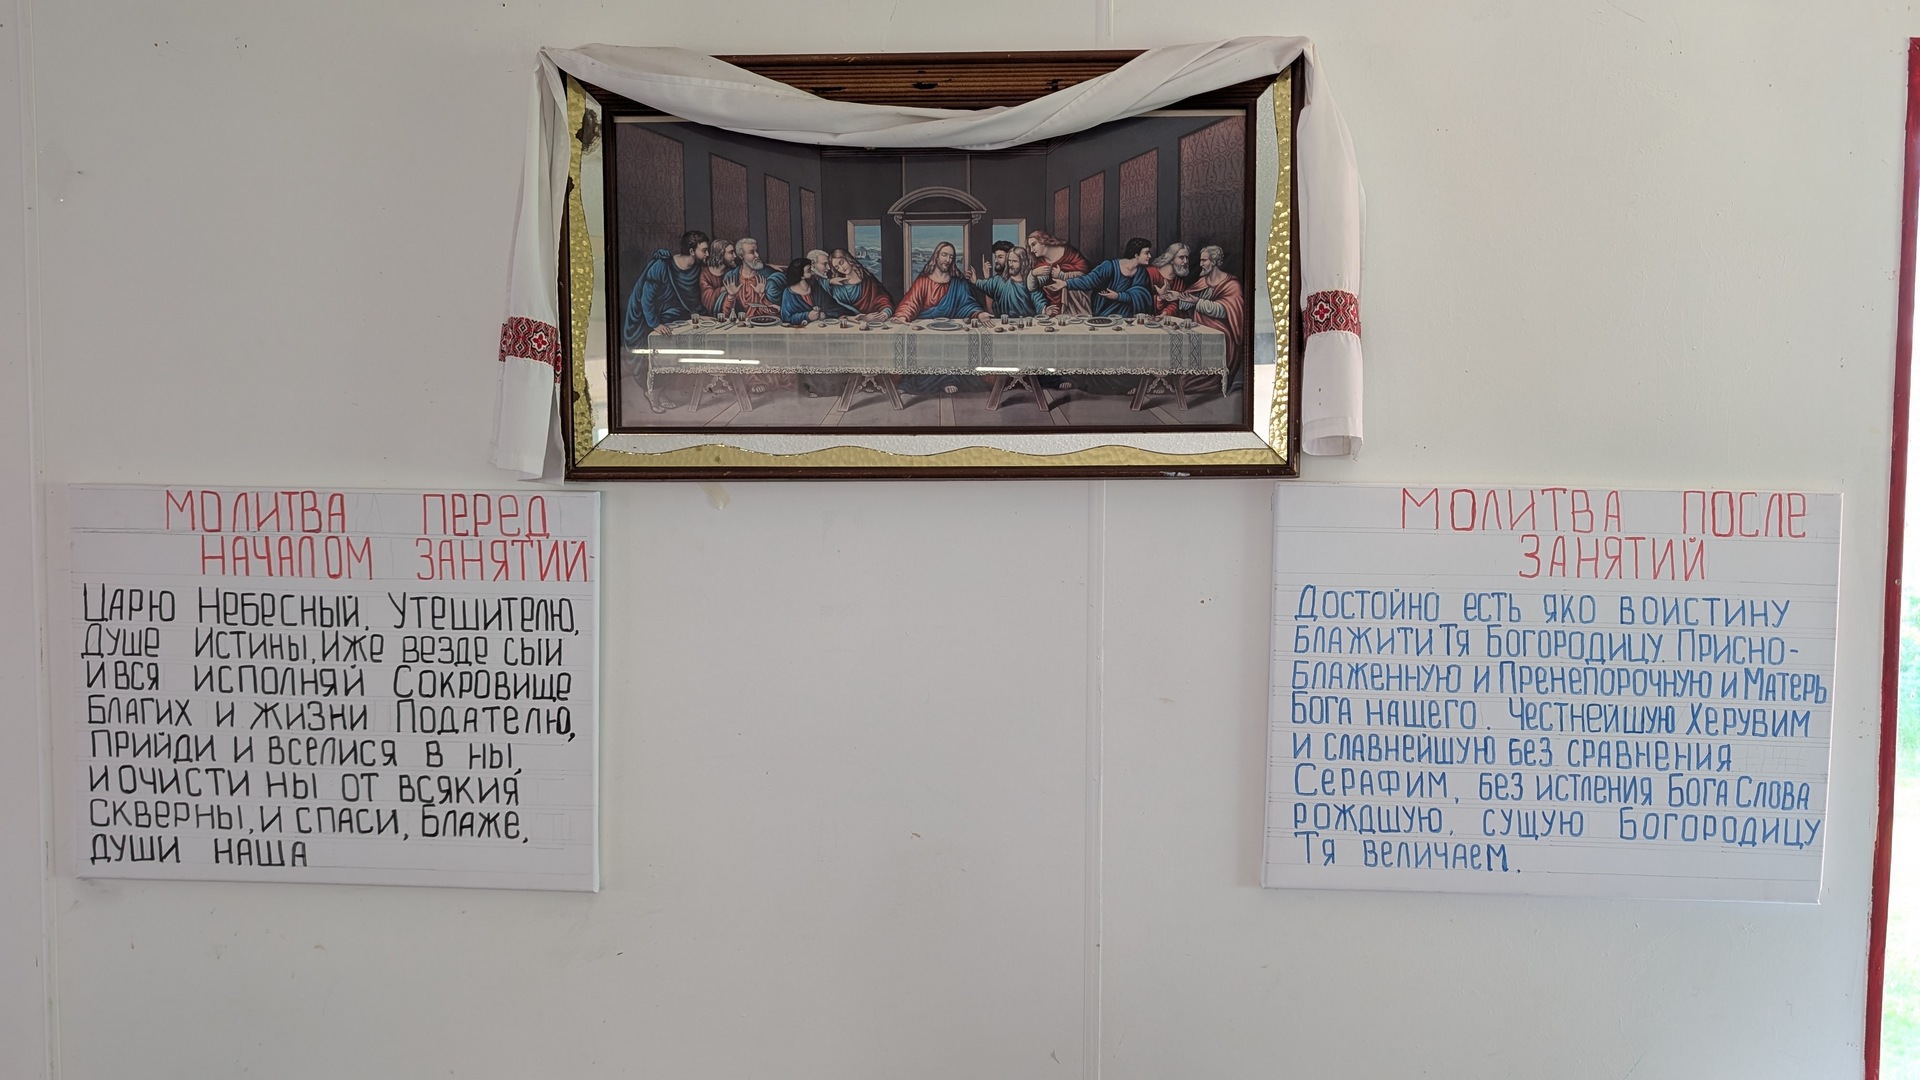 МОЛИТВА ПЕРЕД
НАЧАЛОМ ЗАНЯТИЙ
Царю Небесный, Утешителю,
Душе истины, Иже везде сыи
и вся исполняй Сокровище
благих и жизни Подателю,
прийди и вселися в ны,
и очисти ны от всякия
скверны, и спаси, Блаже,
души наша
МОЛИТВА ПОСЛЕ
ЗАНЯТИЙ
Достойно есть яко воистину
блажити Тя Богородицу. Присно-
блаженную и Пренепорочную и Матерь
Бога нашего. Честнейшую Херувим
и славнейшую без сравнения
Серафим, без истления Бога Слова
рождшую, сущую Богородицу
Тя величаем.